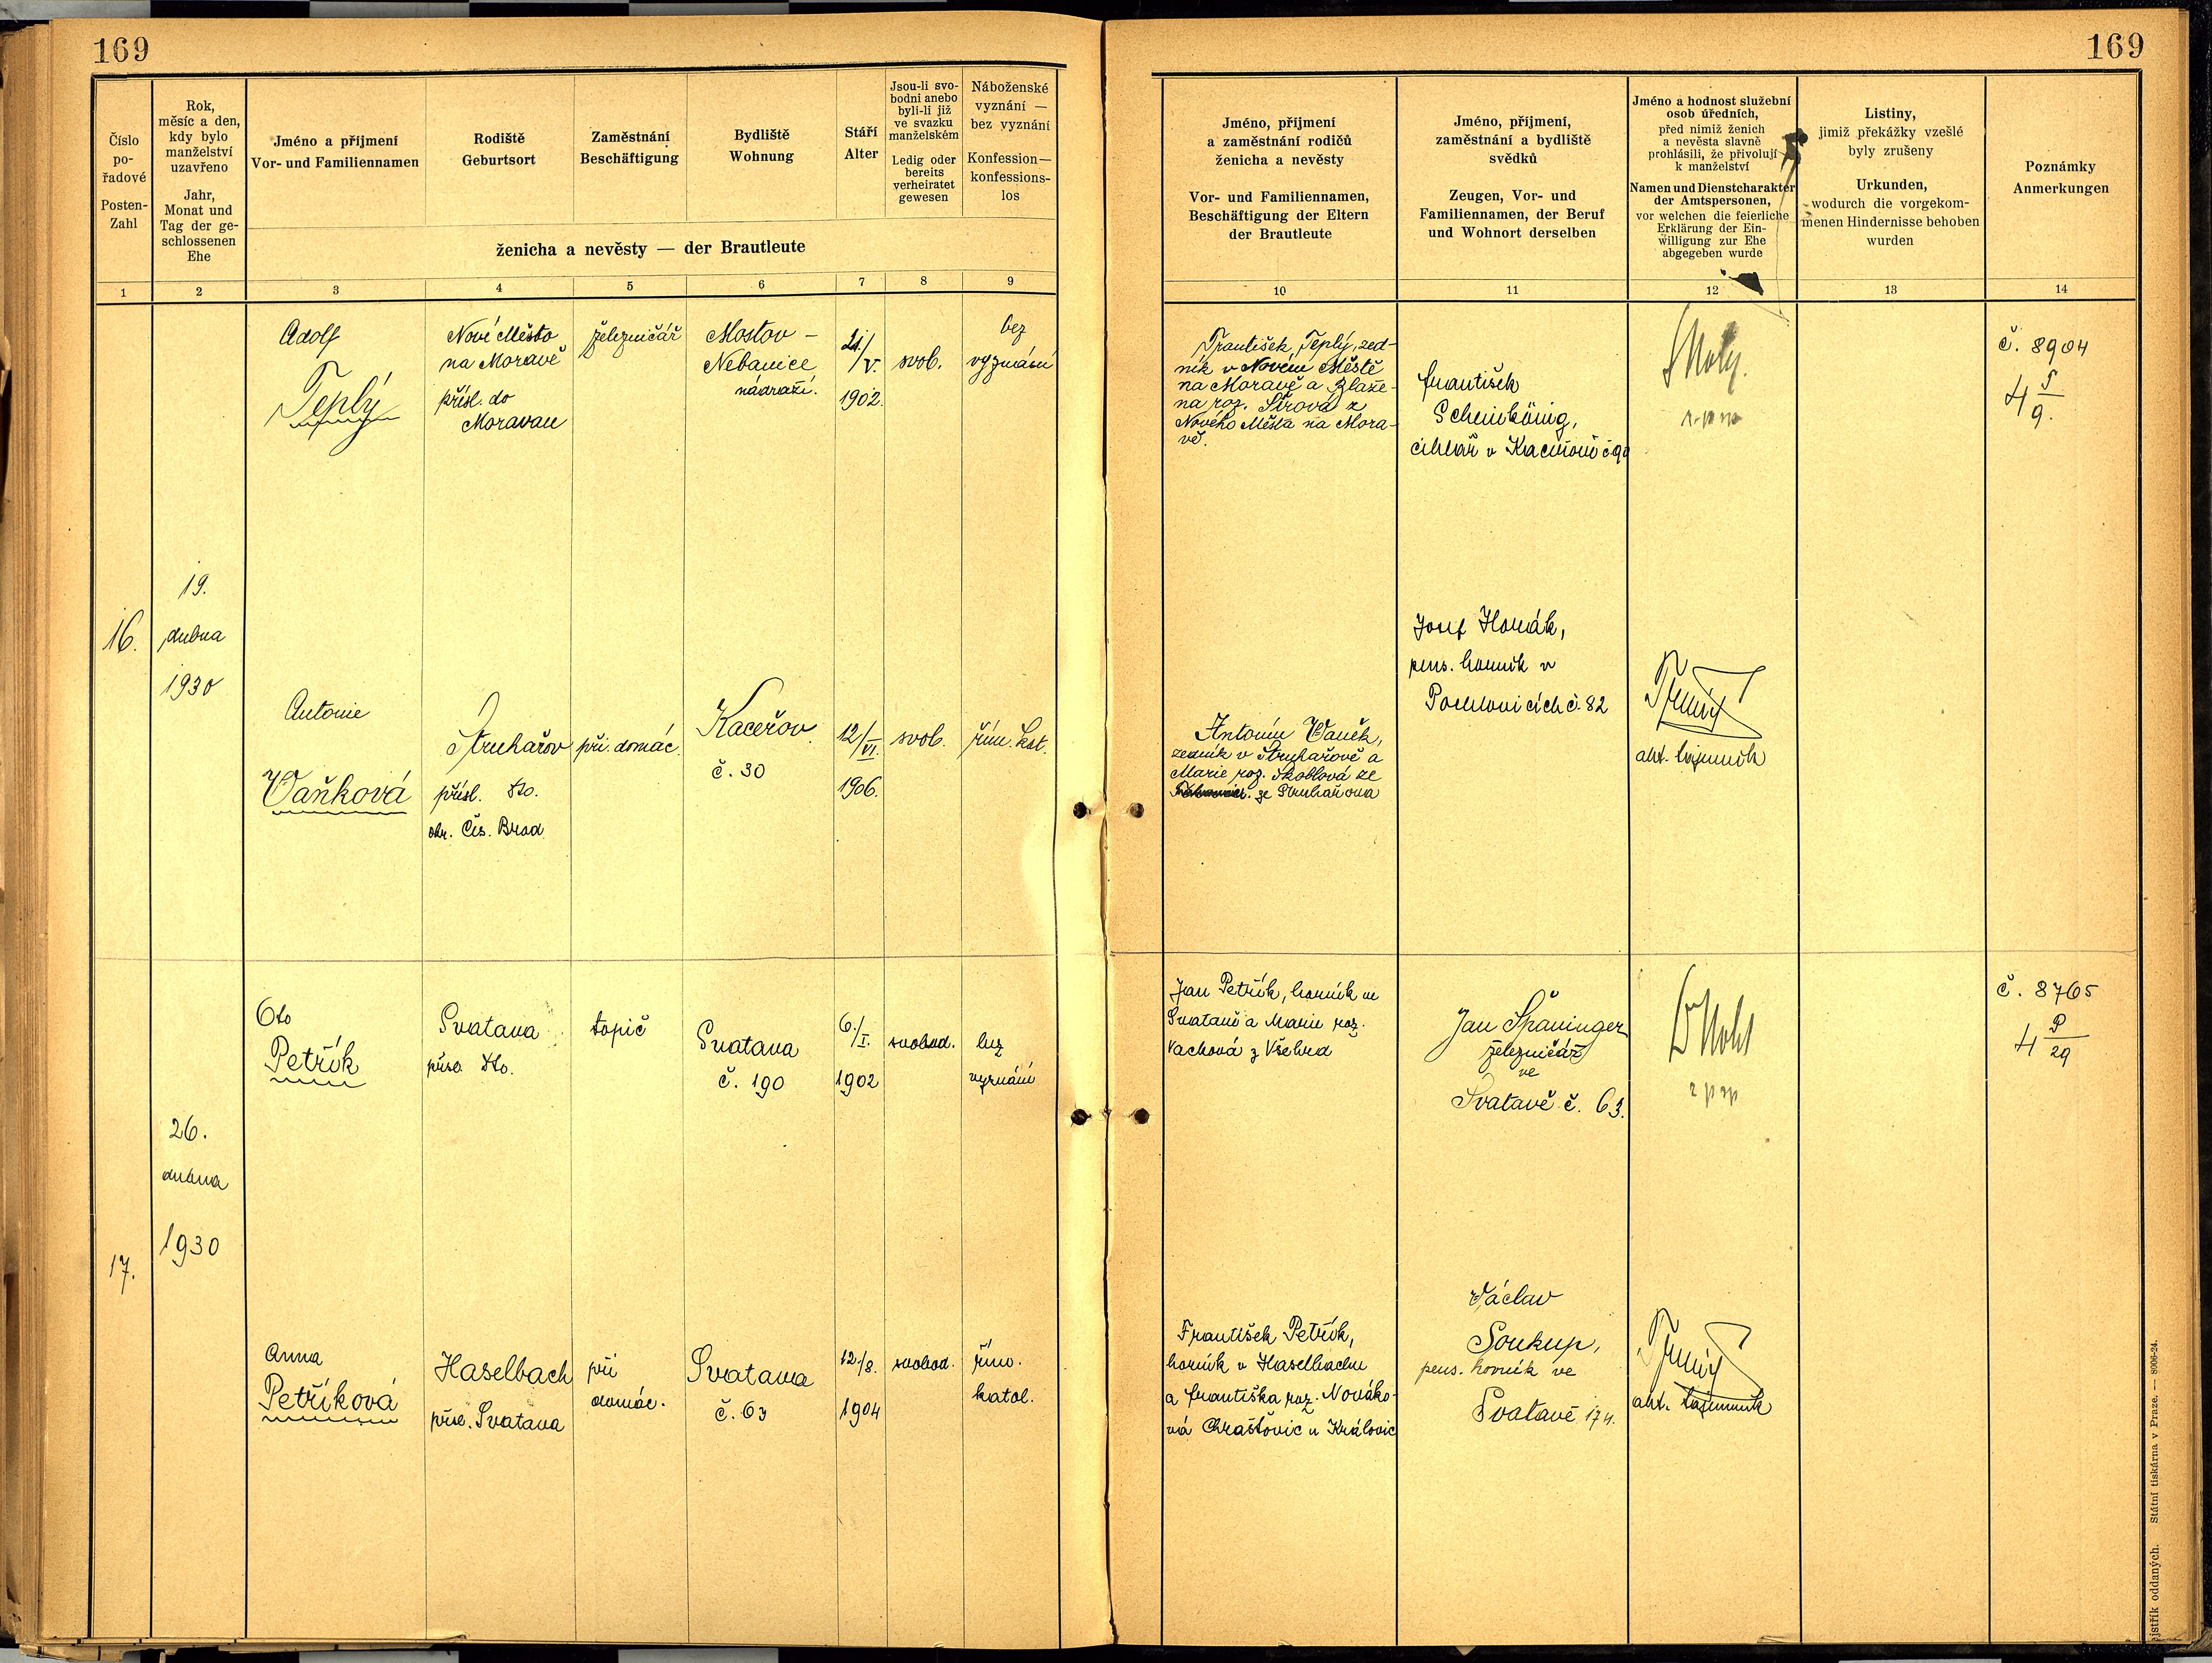 169
169
Číslo
po-
řadové
Posten-
Zahl
Rok,
měsíc a den,
kdy bylo
manželství
uzavřeno
Jahr,
Monat und
Tag der ge-
schlossenen
Ehe
Jméno a příjmení
Vor- und Familiennamen
Rodiště
Geburtsort
Zaměstnání
Beschäftigung
Bydliště
Wohnung
Stáří
Alter
Jsou-li svo-
bodni anebo
byli-li již
ve svazku
manželském
Ledig oder
bereits
verheiratet
gewesen
Náboženské
vyznání —
bez vyznání
Konfession—
konfessions-
los
ženicha a nevěsty — der Brautleute
Jméno, příjmení
a zaměstnání rodičů
ženicha a nevěsty
Vor- und Familiennamen,
Beschäftigung der Eltern
der Brautleute
Jméno, příjmení,
zaměstnání a bydliště
svědků
Zeugen, Vor- und
Familiennamen, der Beruf
und Wohnort derselben
Jméno a hodnost služební
osob úředních,
před nimiž ženich
a nevěsta slavně
prohlásili, že přivolují
k manželství
Namen und Dienstcharakter
der Amtspersonen,
vor welchen die feierliche
Erklärung der Ein-
willigung zur Ehe
abgegeben wurde
Listiny,
jimiž překážky vzešlé
byly zrušeny
Urkunden,
wodurch die vorgekom-
menen Hindernisse behoben
wurden
Poznámky
Anmerkungen
1 2 3 4 5 6 7 8 9 10 11 12 13 14
16.
19.
dubna
1930
Adolf
Teplý
Nové Město
na Moravě
přísl. do
Moravan
železničář
Mostov –
Nebanice
nádraží.
21./V.
1902.
svob.
bez
vyznání
František Teplý, zed-
ník v Novém Městě
na Moravě a Blaže-
na roz. Sírová z
Nového Města na Mora-
vě.
František
Scheinkönig,
cihlář v
č. 8904
4 T/9.
Antonie
Vaňková
Struhařov
přísl. do.
okr. Čes. Brod
při domác.
Kaceřov
č. 30
12/VI.
1906.
svob.
řím. kat.
Antonín Vaněk,
zedník v Struhařově a
Marie roz. Škoblová ze
ze Struhařova
Josef Horák,
pens. horník v
Pochlovicích č. 82
akt. tajemník
17.
26.
dubna
1930
Oto
Petřík
Svatava
přísl. do.
topič
Svatava
č. 190
6./I.
1902
svobod.
bez
vyznání
Jan Petřík, horník ve
Svatavě a Marie roz.
Vachová z Všehrd
Jan Španinger
železničář
ve
Svatavě č. 63.
č. 8765
4 P/29
Anna
Petříková
Haselbach
přísl. Svatava
při
domác.
Svatava
č. 63
12./8.
1904
svobod.
řím.
katol.
František Petřík,
horník v Haselbachu
a Františka roz. Nováko-
vá Chraštovic u Královic
Václav
Soukup,
pens. horník ve
Svatavě 174.
akt. tajemník
Státní tiskárna v Praze. — 8006-24.